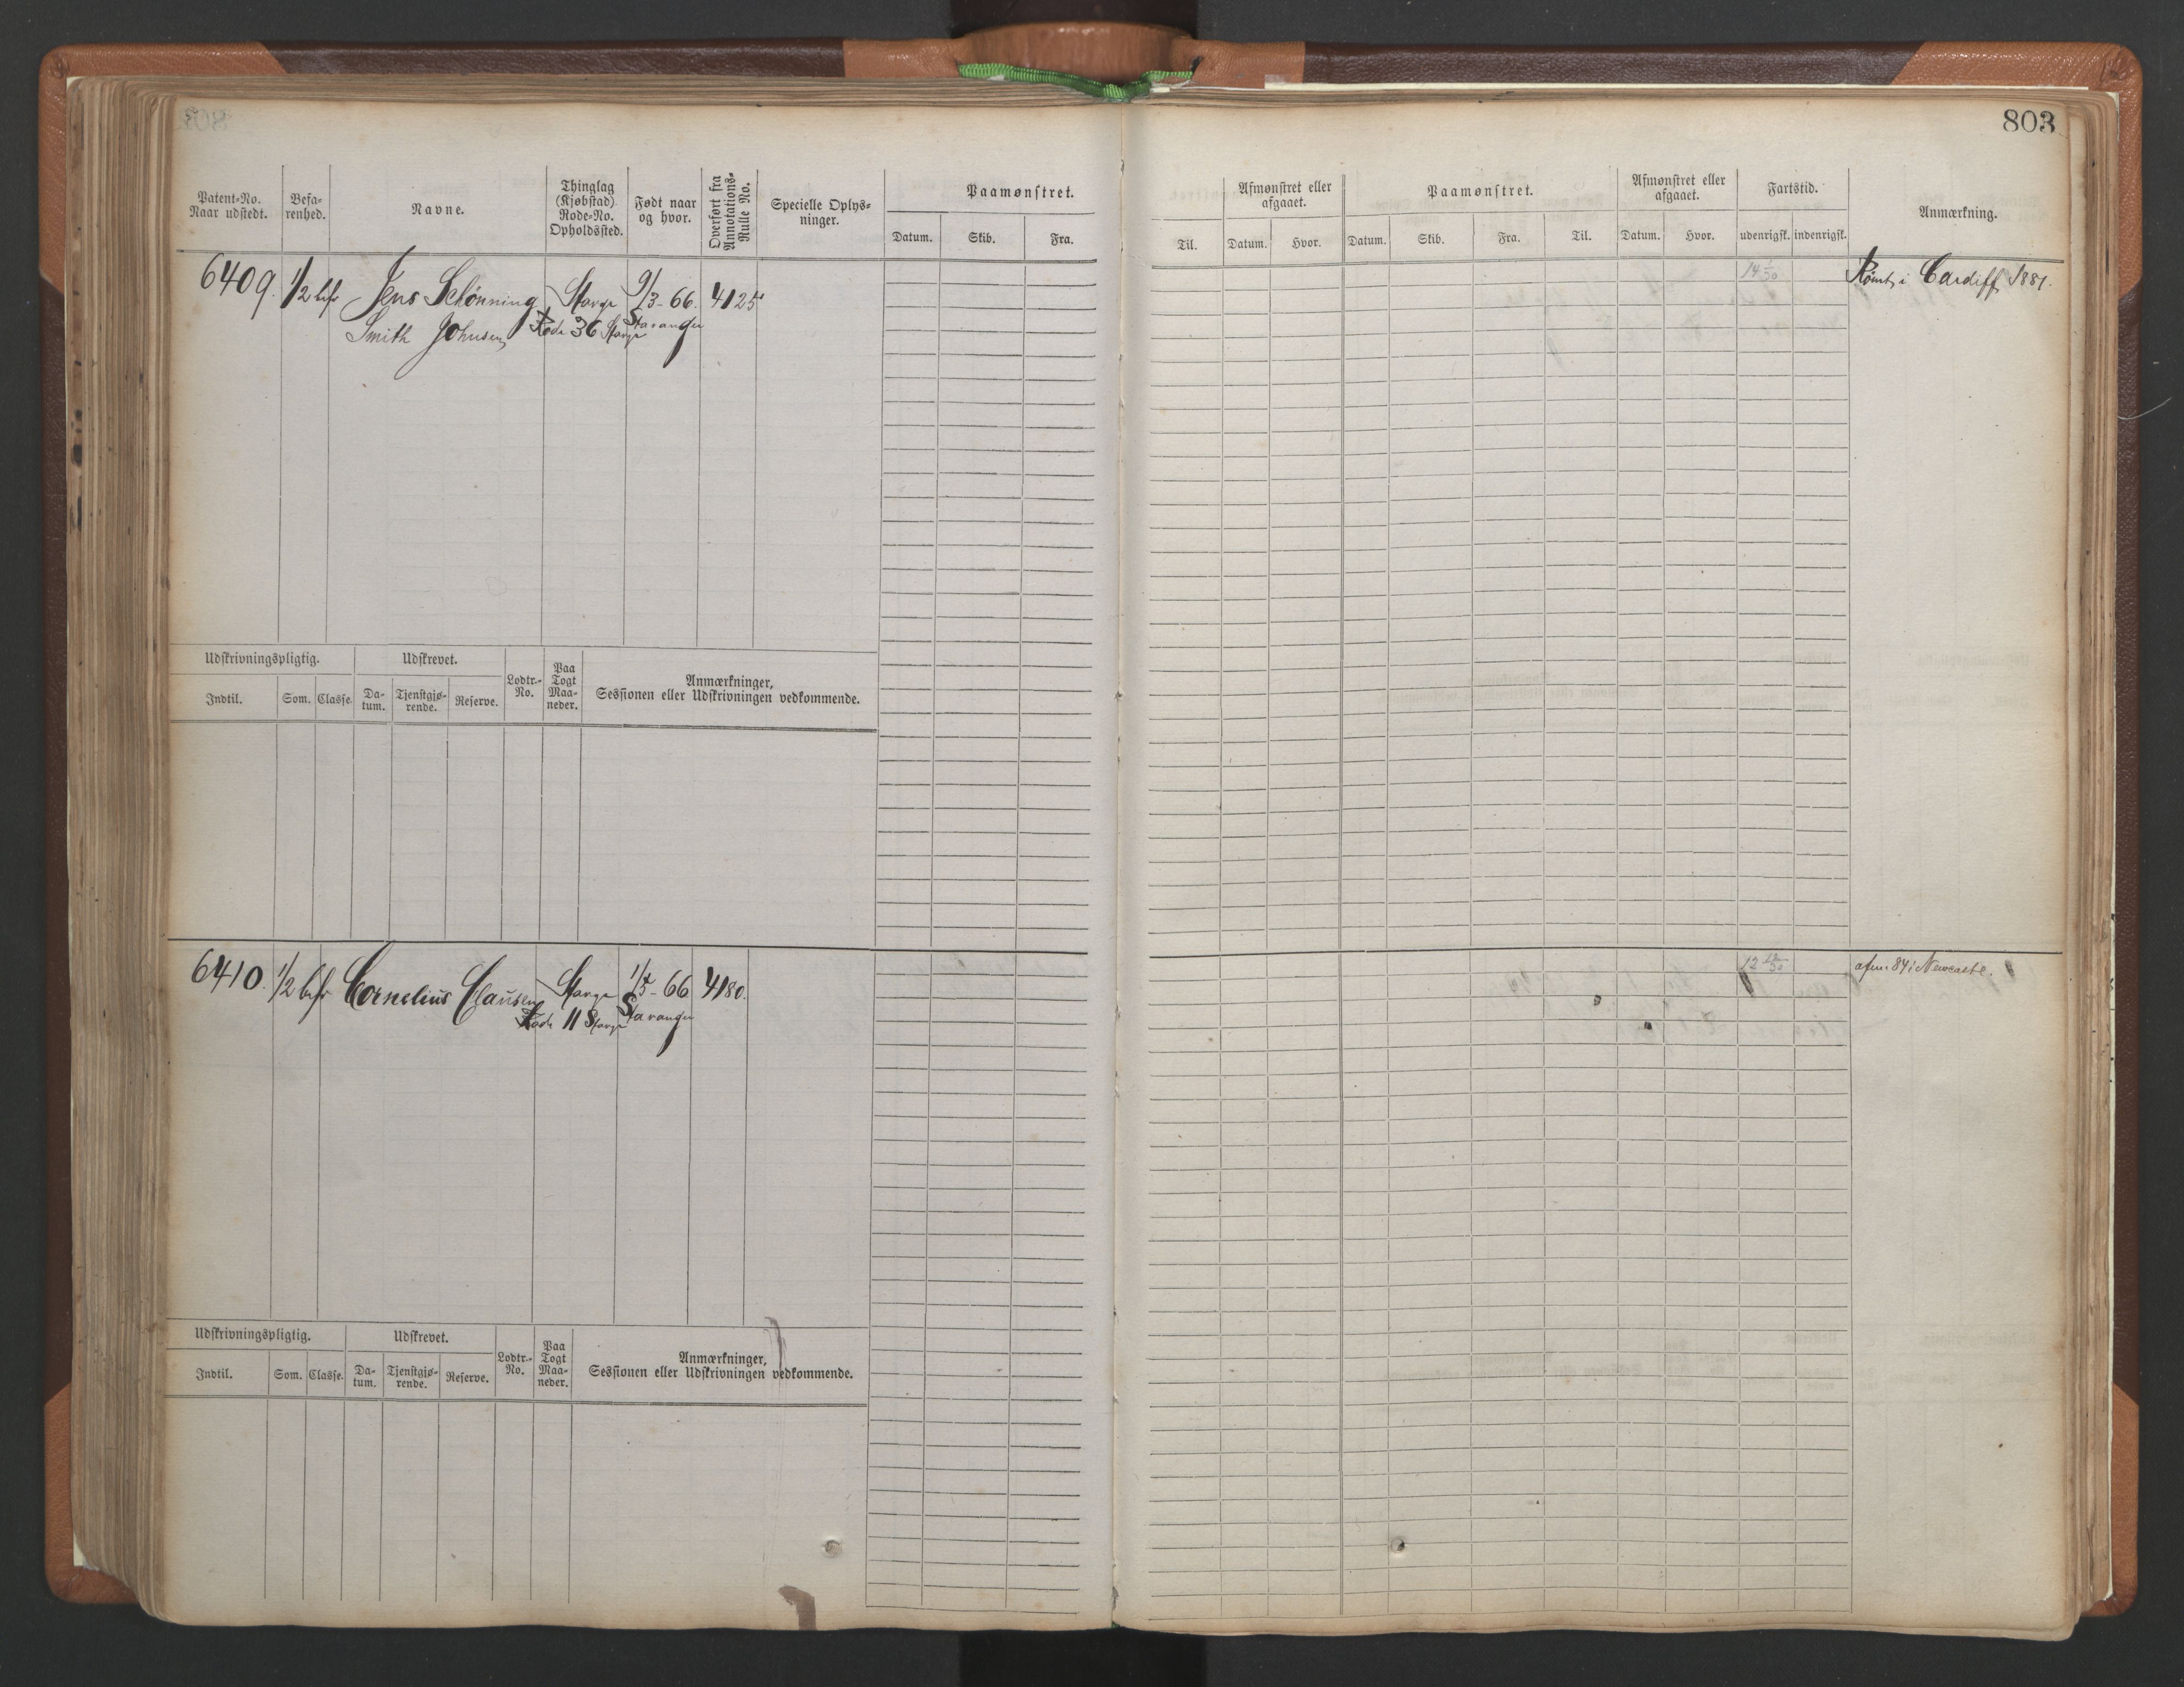 803
Patent-No. Naar udstedt.
Befa-renhed.
Navne.
Thinglag (Kjøbstad) Rode-No. Opholdssted.
Født naar og hvor.
Overført fra Annotations-Rulle No.
Specielle Oplys-ninger.
Paamønstret.
Datum. Skib. Fra.
Til.
Afmønstret eller afgaaet.
Datum. Hvor.
Paamønstret.
Datum. Skib. Fra. Til.
Afmønstret eller afgaaet.
Datum. Hvor.
Fartstid.
udenrigsk. indenrigsk.
Anmærkning.
6409. 1/2 bef Jens Schönning Stavgr 9/3-66. 4125 Rømt i Cardiff 1881.
Smith Johnsen Rode 36 Stavgr Stavanger
Udskrivningspligtig. Udskrevet. Lodtr.-No. Paa Togt Maa-neder. Anmærkninger, Sessionen eller Udskrivningen vedkommende.
Indtil. Som. Classe. Da-tum. Tjenstgjø-rende. Reserve.
6410. 1/2 befr Cornelius Clausen Stavgr 1/5-66 4180. afm: 84 i Newcastle.
Rode 11 Stavgr Stavanger
Udskrivningspligtig. Udskrevet. Lodtr.-No. Paa Togt Maa-neder. Anmærkninger, Sessionen eller Udskrivningen vedkommende.
Indtil. Som. Classe. Da-tum. Tjenstgjø-rende. Reserve.